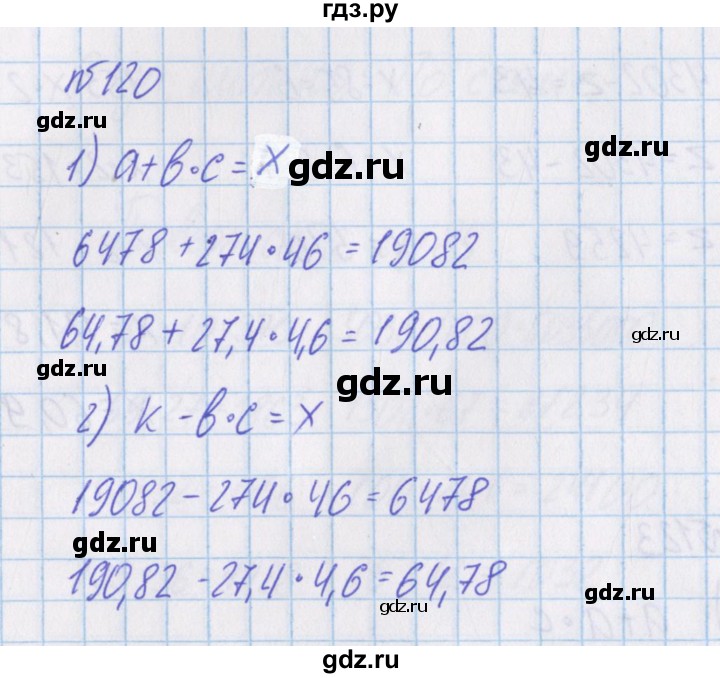 гдз.ру
№120
gdz.ru
1) a+b·c=x
gdz.ru
gdz.ru
6478+274·46=19082
64,78+27,4·4,6=190,82
gdz.ru
gdz.ru
gdz.ru
2) k-b·c=x
19082-274·46=6478
gdz.ru
190,82-27,4·4,6=64,78
gdz.ru
gdz.ru
gdz.ru